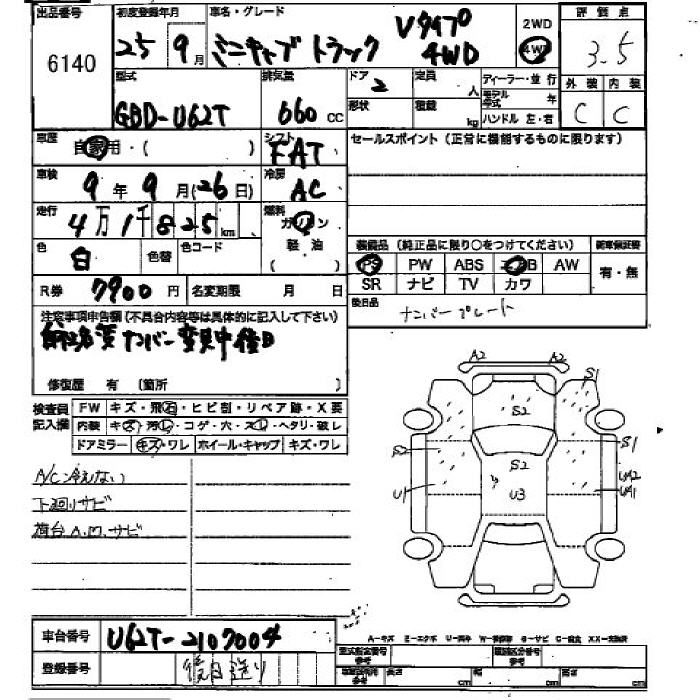 出品番号
6140
初度登録年月
25年 9月
車名・グレード
ミニキャブ トラック Vタイプ 4WD
2WD
4WD
評価点
3.5
外装
内装
C
C
型式
GBD-U62T
排気量
660 cc
ドア
2
形状
定員
人
積載
kg
ディーラー・並行
モデル年式 年
ハンドル 左・右
車歴
自家用・( )
シフト
FAT
セールスポイント (正常に機能するものに限ります)
車検
9年 9月 (26日)
冷房
AC
走行
4万 1千 8 2 5 km
燃料
ガソリン
軽油
( )
色
白
色替
色コード
装備品 (純正品に限り○をつけてください)
新車保証書
PS PW ABS エアB AW
SR ナビ TV カワ
有・無
R券
7900円
名変期限 月 日
後日品
ナンバープレート
注意事項申告欄 (不具合内容等は具体的に記入して下さい)
ナンバー変更中後日
修復歴 有 (箇所 )
検査員記入欄
FW キズ・飛石・ヒビ割・リペア跡・X要
内装 キズ・汚レ・コゲ・穴・スレ・ヘタリ・破レ
ドアミラー キズ・ワレ ホイール・キャップ キズ・ワレ
A/C冷えない
下廻りサビ
荷台A.U.サビ
A2
A2
S1
S2
S2
S1
S2
U1
U3
UA2
UA1
車台番号
U62T-2107004
登録番号
後日送り
A-キズ E-エクボ U-凹 W-補修跡 S-サビ C-腐食 XX-交換済
型式指定番号
参考
類別区分番号
参考
長さ
cm
幅
cm
高さ
cm